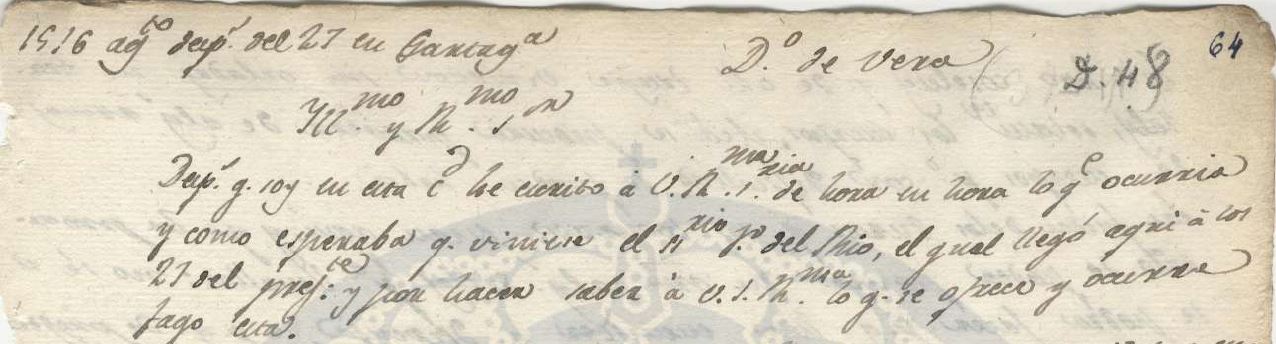 1516 ag.to desp.s del 27 en Cartag.a D.o de Vera D. 48 64
Ill.mo y R.mo S.or
Desp.s q. soy en esta c.d he escrito à V. R. S.ma ria de hora en hora lo q.e ocurria
y como esperaba q. viniese el s.rio J.o del Rio, el qual llegó aqui à los
27 del pres.te y por hacer saber à V. S. R.ma lo q. se ofrece y ocurre
fago esta.